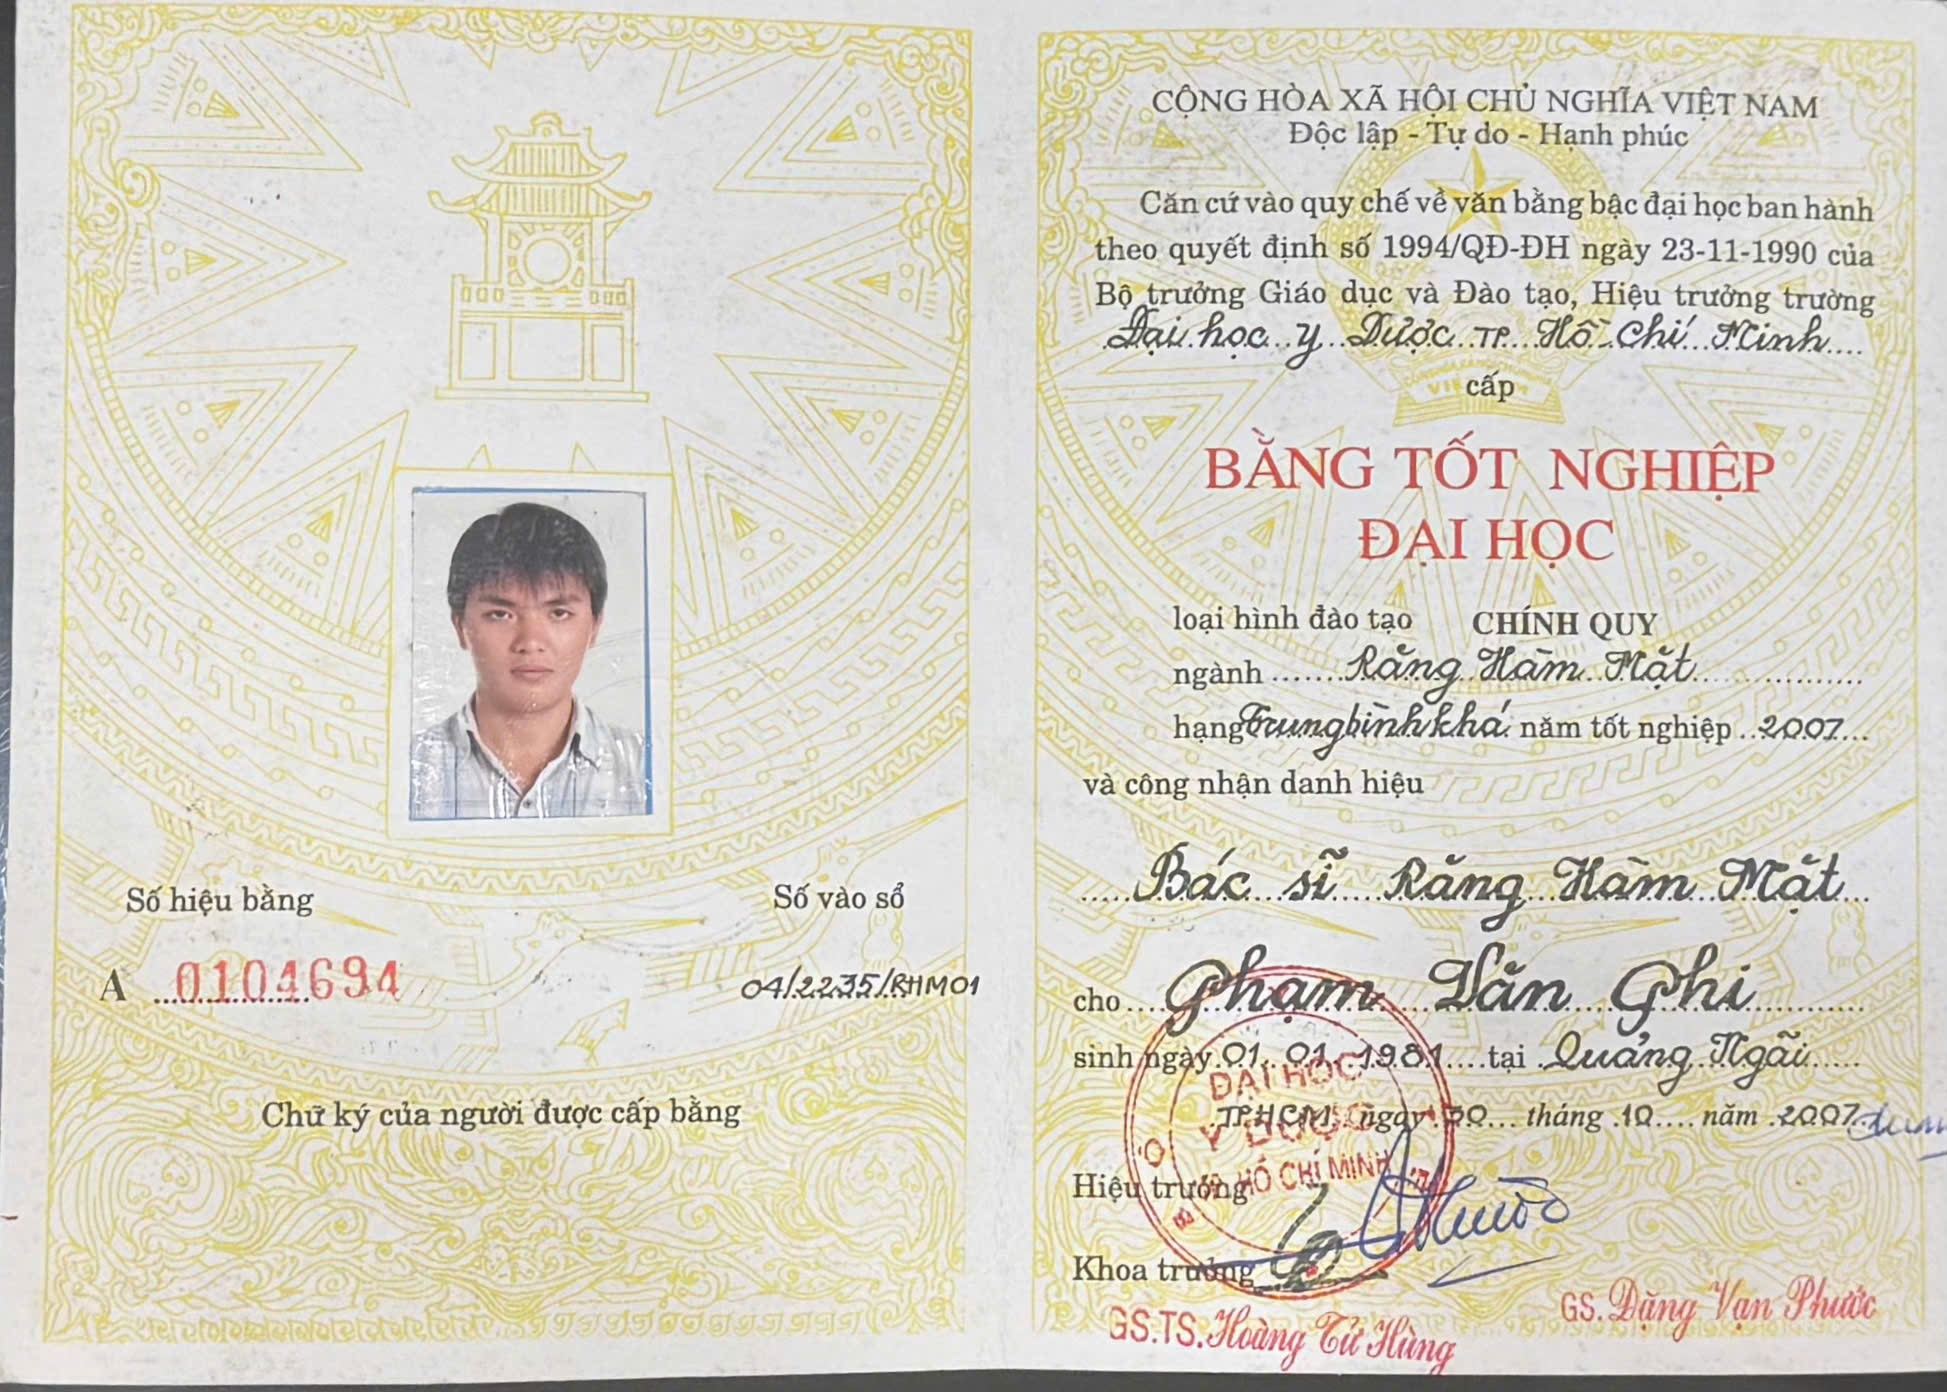 Số hiệu bằng
Số vào sổ
A 0104694
04/2235/RHM01
Chữ ký của người được cấp bằng
CỘNG HÒA XÃ HỘI CHỦ NGHĨA VIỆT NAM
Độc lập - Tự do - Hạnh phúc
Căn cứ vào quy chế về văn bằng bậc đại học ban hành
theo quyết định số 1994/QĐ-ĐH ngày 23-11-1990 của
Bộ trưởng Giáo dục và Đào tạo, Hiệu trưởng trường
Đại học Y Dược TP. Hồ Chí Minh
cấp
BẰNG TỐT NGHIỆP
ĐẠI HỌC
loại hình đào tạo CHÍNH QUY
ngành Răng Hàm Mặt
hạng Trung bình khá năm tốt nghiệp 2007
và công nhận danh hiệu
Bác sĩ Răng Hàm Mặt
cho Phạm Văn Ghi
sinh ngày 01. 01. 1981 tại Quảng Ngãi
TP.HCM, ngày 30 tháng 10 năm 2007
ĐẠI HỌC
Y DƯỢC
HỒ CHÍ MINH
Hiệu trưởng
Khoa trưởng
GS.TS. Hoàng Tử Hùng
GS. Đặng Vạn Phước